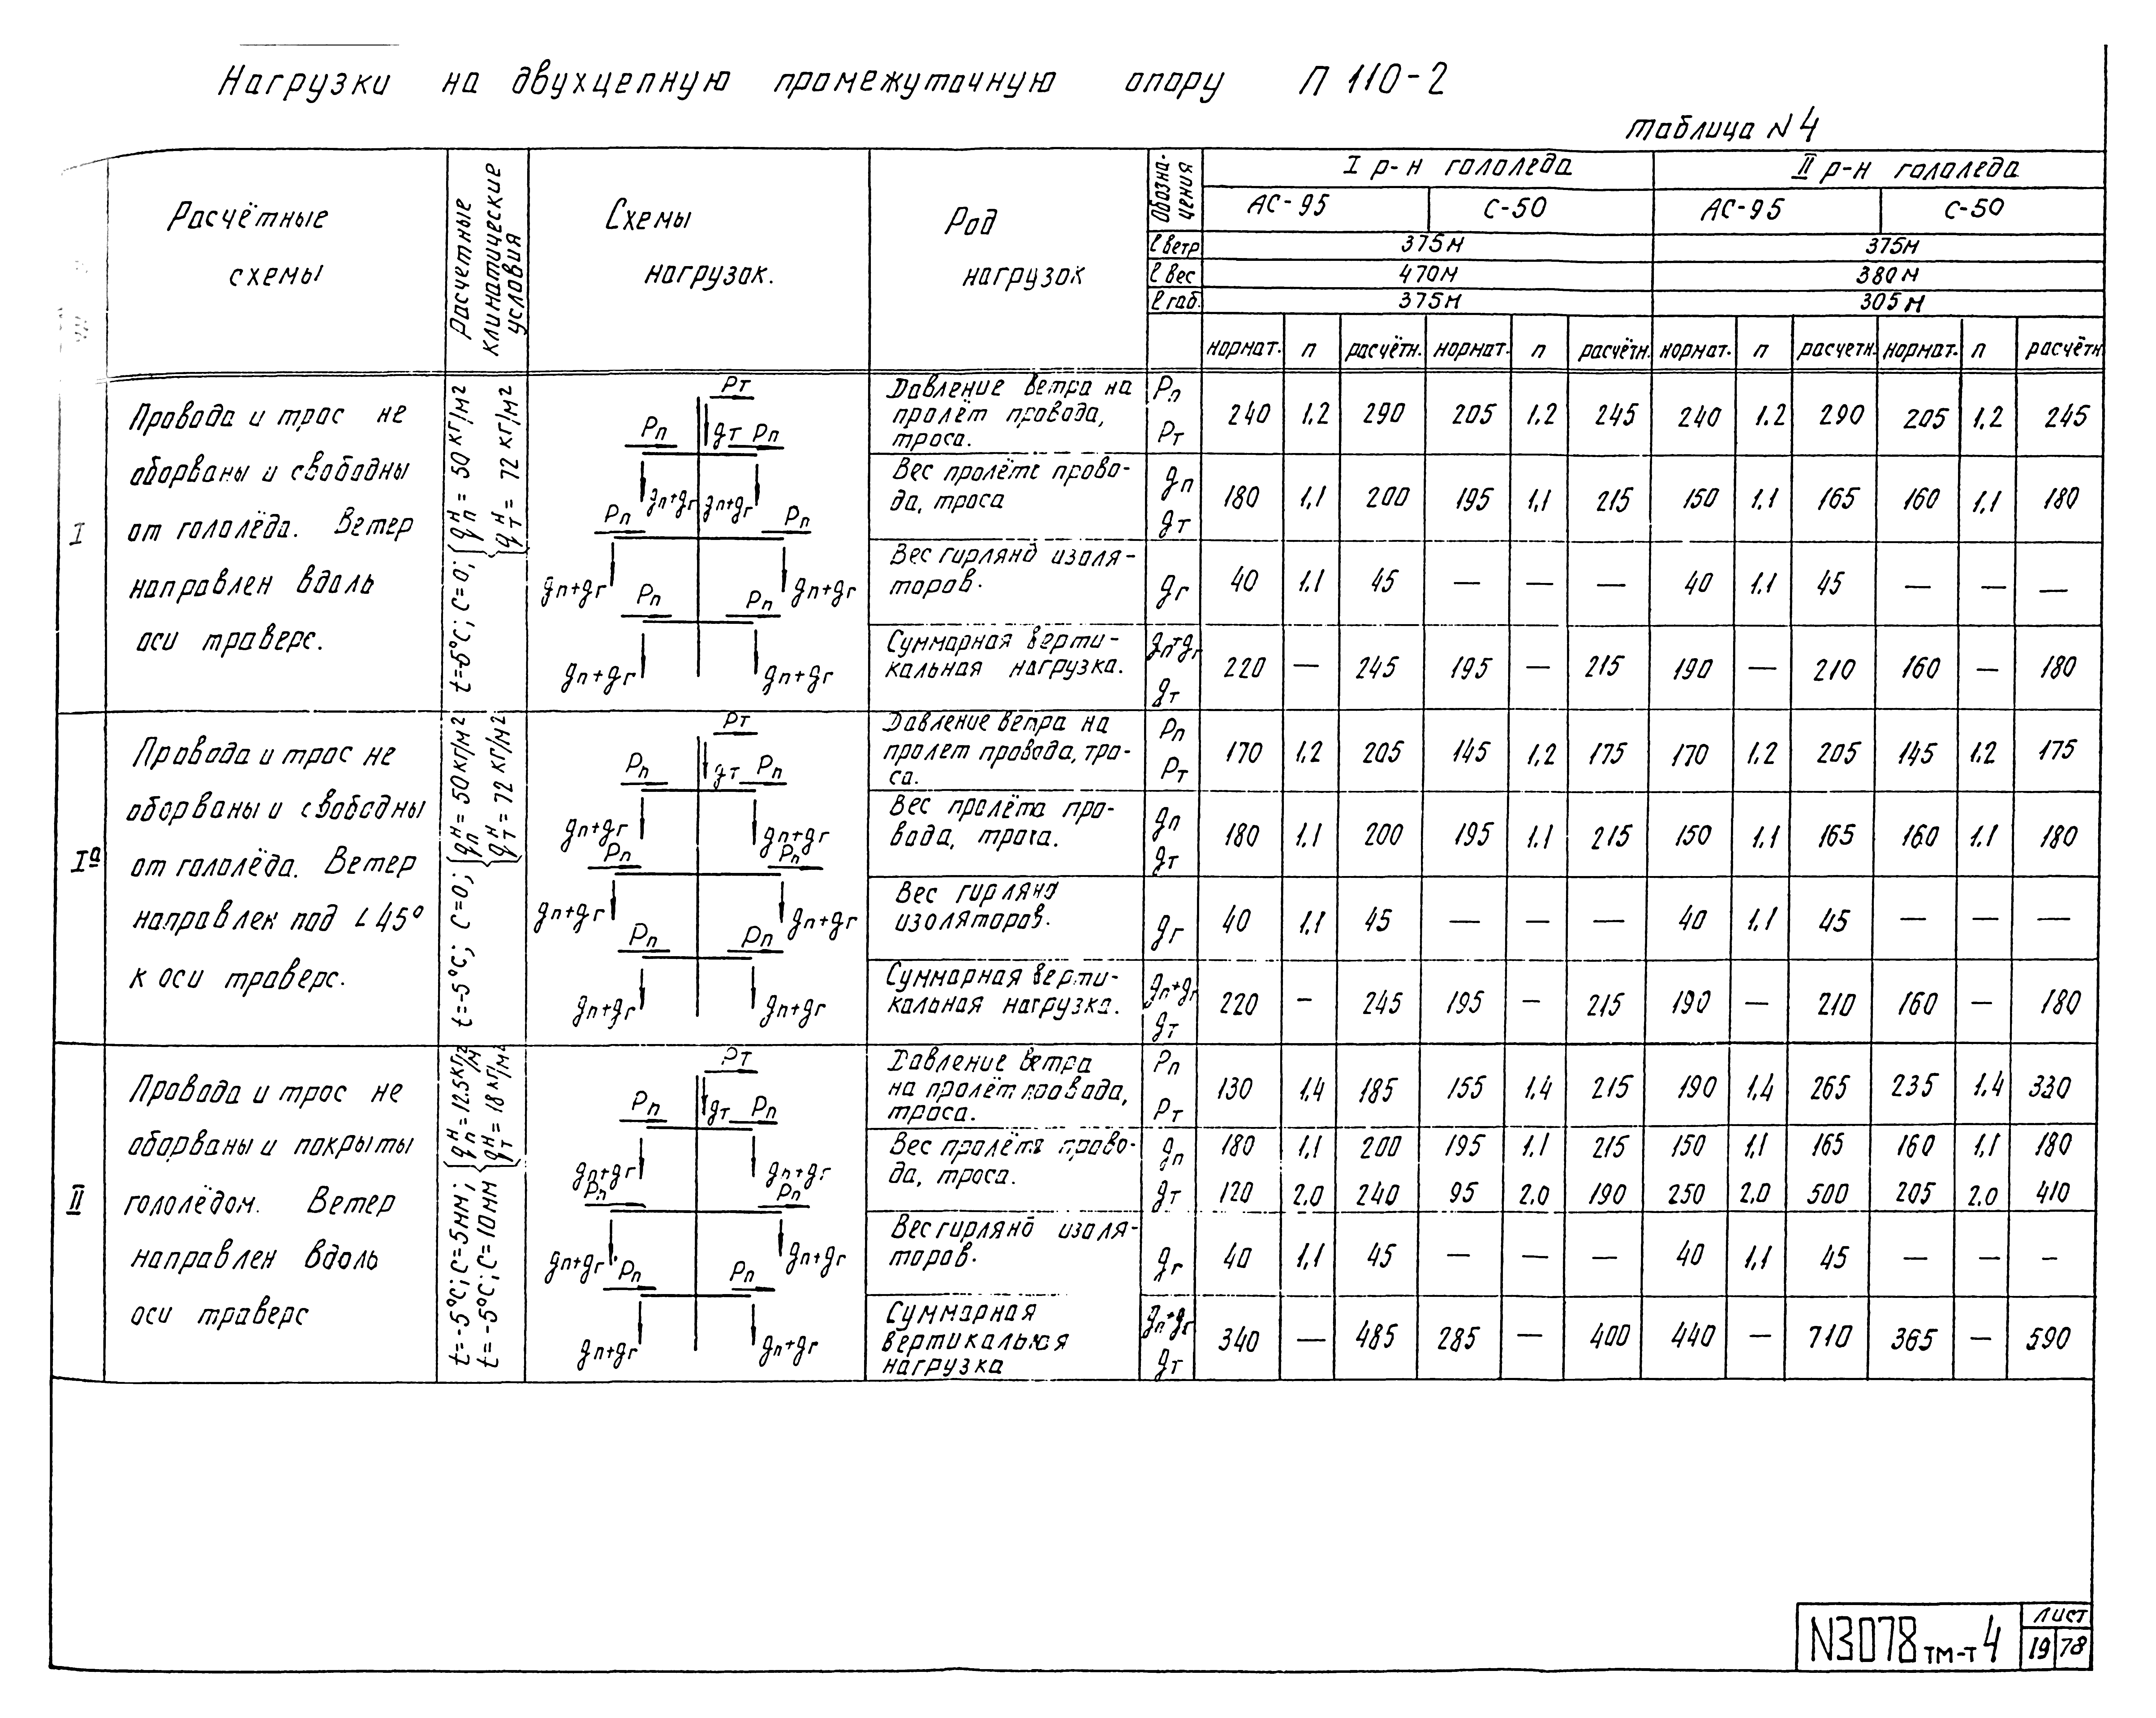 Нагрузки на двухцепную промежуточную опору П 110-2
таблица N 4
Расчётные схемы
Расчетные климатические условия
Схемы нагрузок.
Род нагрузок
Обозна-
чения
I р-н гололеда
II р-н гололеда
АС-95 С-50 АС-95 С-50
ℓ ветр 375м 375м
ℓ вес 470м 380м
ℓ габ. 375м 305м
нормат. п расчётн. нормат. п расчётн. нормат. п расчетн. нормат. п расчётн
I
Провода и трос не
оборваны и свободны
от гололёда. Ветер
направлен вдоль
оси траверс.
t=-5°C; C=0; {qпᴴ = 50 кг/м²
qтᴴ = 72 кг/м²
Pт
Pп gт Pп
gп+gг gп+gг
Pп Pп
gп+gг gп+gг
Pп Pп
gп+gг gп+gг
Давление ветра на
пролёт провода,
троса.
Pп
Pт
240 1.2 290 205 1.2 245 240 1.2 290 205 1.2 245
Вес пролёта прово-
да, троса
gп
gт
180 1.1 200 195 1.1 215 150 1.1 165 160 1.1 180
Вес гирлянд изоля-
торов.
gг
40 1.1 45 — — — 40 1.1 45 — — —
Суммарная верти-
кальная нагрузка.
gп+gг
gт
220 — 245 195 — 215 190 — 210 160 — 180
Iа
Провода и трос не
оборваны и свободны
от гололёда. Ветер
направлен под ∠45°
к оси траверс.
t=-5°C; C=0; {qпᴴ = 50кг/м²
qтᴴ = 72 кг/м²
Pт
Pп gт Pп
gп+gг gп+gг
Pп Pп
gп+gг gп+gг
Pп Pп
gп+gг gп+gг
Давление ветра на
пролет провода, тро-
са.
Pп
Pт
170 1.2 205 145 1.2 175 170 1.2 205 145 1.2 175
Вес пролёта про-
вода, троса.
gп
gт
180 1.1 200 195 1.1 215 150 1.1 165 160 1.1 180
Вес гирлянд
изоляторов.
gг
40 1.1 45 — — — 40 1.1 45 — — —
Суммарная верти-
кальная нагрузка.
gп+gг
gт
220 — 245 195 — 215 190 — 210 160 — 180
II
Провода и трос не
оборваны и покрыты
гололёдом. Ветер
направлен вдоль
оси траверс
t=-5°C; C=5мм; {qпᴴ = 12.5кг/м²
t=-5°C; C=10мм {qтᴴ = 18 кг/м²
Pт
Pп gт Pп
gп+gг gп+gг
Pп Pп
gп+gг gп+gг
Pп Pп
gп+gг gп+gг
Давление ветра
на пролёт провода,
троса.
Pп
Pт
130 1.4 185 155 1.4 215 190 1.4 265 235 1.4 330
Вес пролёта прово-
да, троса.
gп 180 1.1 200 195 1.1 215 150 1.1 165 160 1.1 180
gт 120 2.0 240 95 2.0 190 250 2.0 500 205 2.0 410
Вес гирлянд изоля-
торов.
gг
40 1.1 45 — — — 40 1.1 45 — — —
Суммарная
вертикальная
нагрузка
gп+gг
gт
340 — 485 285 — 400 440 — 710 365 — 590
N3078тм-т4
лист
19 78